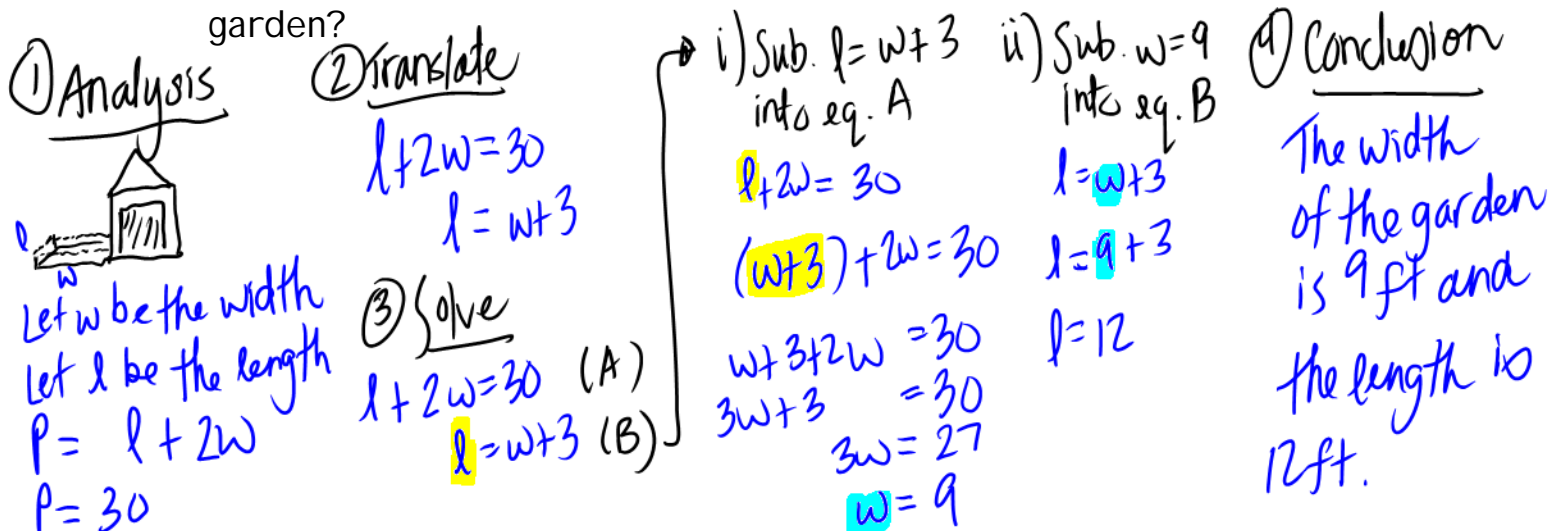 garden?
① Analysis
l
w
Let w be the width
Let l be the length
P = l + 2w
P = 30
② Translate
l + 2w = 30
l = w + 3
③ Solve
l + 2w = 30 (A)
l = w + 3 (B)
i) Sub. l = w + 3
into eq. A
l + 2w = 30
(w+3) + 2w = 30
w + 3 + 2w = 30
3w + 3 = 30
3w = 27
w = 9
ii) Sub. w = 9
into eq. B
l = w + 3
l = 9 + 3
l = 12
④ Conclusion
The width
of the garden
is 9 ft and
the length is
12 ft.